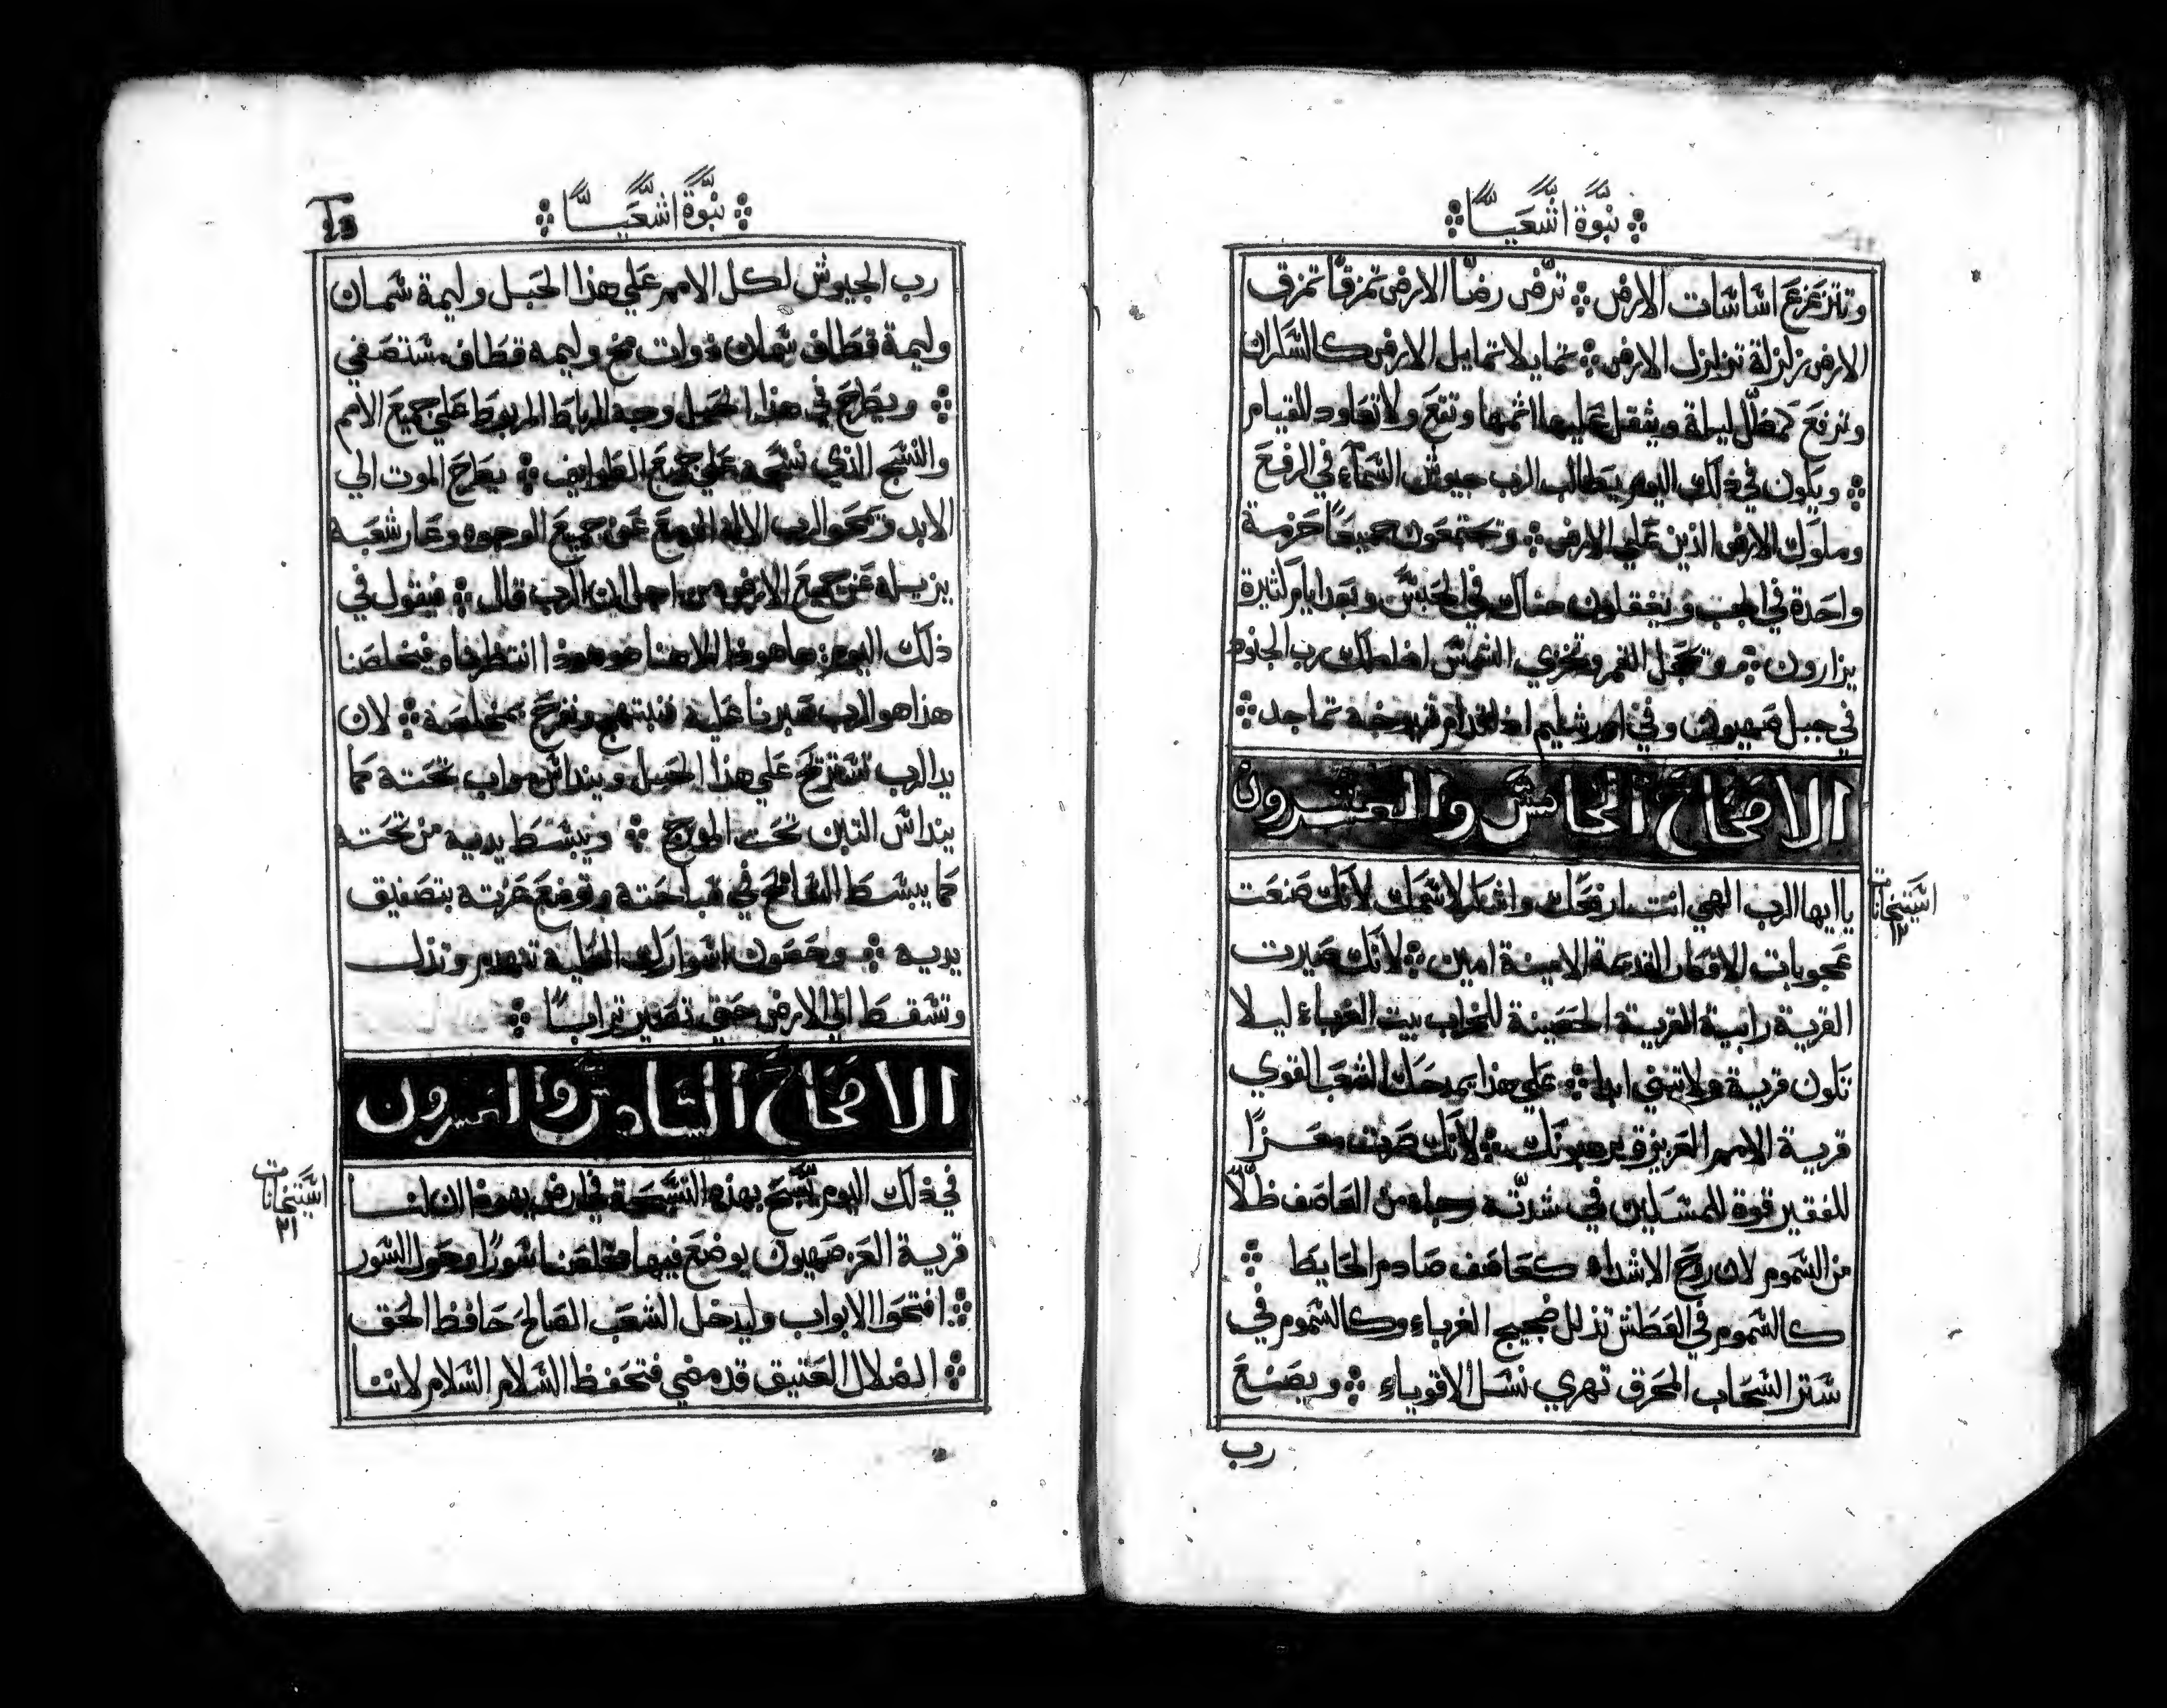 نبوة اشعيا
وتتزعزع اشاشات الارض ترض رضا الارض تمزقا تمزق
الارض زلزلة تزلزل الارض تمايلا تمايل الارض كالسكران
وترفع كمظل ليلة ويثقل عليها اثمها وتقع ولا تعاود للقيام
ويكون في ذلك اليوم يطالب الرب جيوش السماء في الرفع
وملوك الارض الذين علي الارض وتجتمعون جميعا حزمة
واحدة في الجب ويغقلون هناك في الحبس وبعد ايام كثيرة
يزارون وتخجل القمر وتخزي الشمس اذا ملك رب الجنود
في جبل صهيون وفي اورشليم اذ قدام شيوخه تماجد
الاصحاح الخامس والعشرون
يا ايها الرب الهي انت ارفعك واشكر لاسمك لانك صنعت
عجوبات الافكار القديمة الامينة امين لانك صيرت
القرية رابية القرية الحصينة للخراب بيت الغرباء ليلا
تكون قرية ولا تبني ابدا علي هذا يمدحك الشعب القوي
قرية الامم العزيزة يرهبونك لانك صرت معزا
للفقير قوة للمسكين في شدته رجاه من العاصف ظلا
من السموم لان روح الاشداء كعاصف صادم الحايط
كالسموم في العطش تذلل ضجيج الغرباء وكالسموم في
ستر السحاب المحرق تهري نسل الاقوياء ويصنع
رب
استيخانات
١٢
نبوة اشعيا
23
رب الجيوش لكل الامم علي هذا الجبل وليمة سمان
وليمة قطاف سمان ذوات مخ وليمه قطاف مستصفي
ويطرح في هذا الجبل وجه الرباط المربوط علي جميع الامم
والنسج الذي نسجه علي جميع الطوايف يطرح الموت الي
الابد وتمحوا الرب الاله الدمع عن جميع الوجوه وعار شعبه
يزيله عن جميع الارض من اجل ان الرب قال فيقول في
ذلك اليوم ها هوذا الاهنا هو هذا انتظرناه فيخلصنا
هذا هو الرب صبرنا عليه فنبتهج ونفرح بمخلصه لان
يد الرب تستريح علي هذا الجبل وينداس مواب تحته كما
ينداس التبن تحت الموج ويبسط يديه من تحته
كما يبسط السابح في سباحته وتوضع عزته بتصفيق
يديه وحصون اسوارك العلية تنهدم وتذل
وتسقط الي الارض حتي تصير ترابا
الاصحاح السادس والعشرون
في ذلك اليوم يسبح بهذه التسبحة في ارض يهوذا ان لنا
قرية العز صهيون يوضع فيها مخلصنا سورا وحول السور
افتحوا الابواب وليدخل الشعب الصالح حافظ الحق
الضلال العتيق قد مضي فتحفظ السلام السلام لاننا
استيخانات
٢١